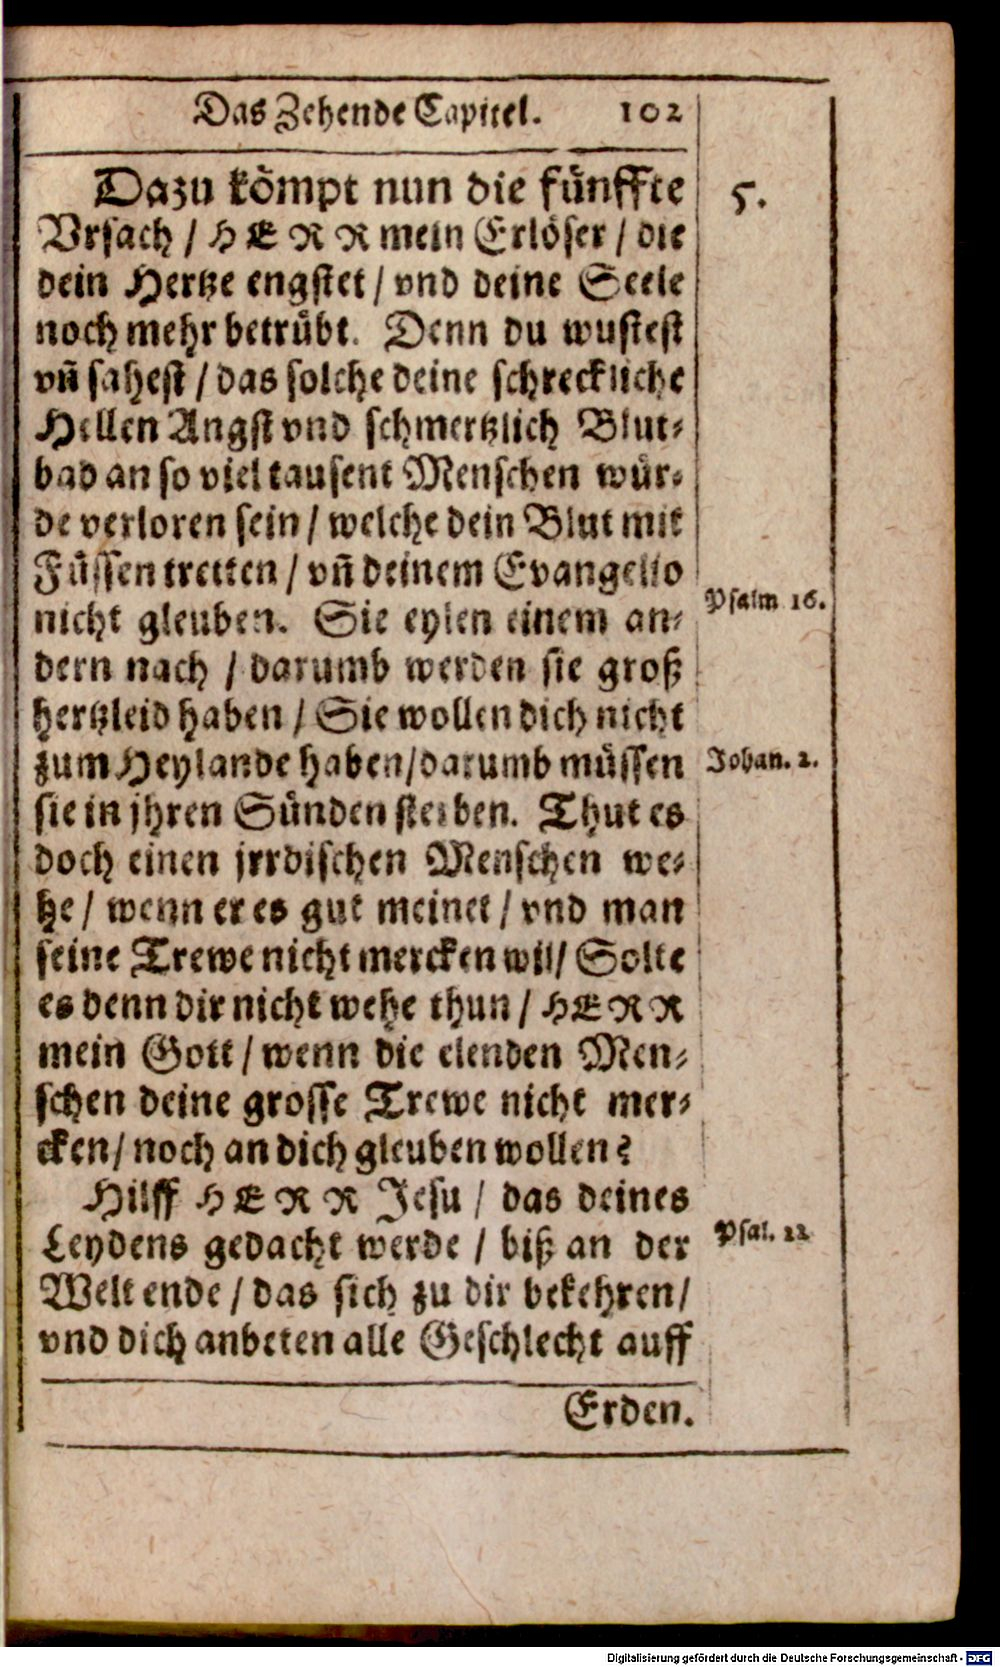 Das Zehende Capitel. 102
Dazu kömpt nun die fünffte
5.
Vrsach / HERR mein Erlöser / die
dein Hertze engstet / vnd deine Seele
noch mehr betrübt. Denn du wustest
vñ sahest / das solche deine schreckliche
Hellen Angst vnd schmertzlich Blut-
bad an so viel tausent Menschen wür-
de verloren sein / welche dein Blut mit
Füssen tretten / vñ deinem Evangelio
nicht gleuben. Sie eylen einem an-
Psalm 16.
dern nach / darumb werden sie groß
hertzleid haben / Sie wollen dich nicht
zum Heylande haben / darumb müssen
Johan. 2.
sie in jhren Sünden sterben. Thut es
doch einen jrrdischen Menschen we-
he / wenn er es gut meinet / vnd man
seine Trewe nicht mercken wil / Solte
es denn dir nicht wehe thun / HERR
mein Gott / wenn die elenden Men-
schen deine grosse Trewe nicht mer-
cken / noch an dich gleuben wollen?
Hilff HERR Jesu / das deines
Leydens gedacht werde / biß an der
Psal. 22
Welt ende / das sich zu dir bekehren /
vnd dich anbeten alle Geschlecht auff
Erden.
Digitalisierung gefördert durch die Deutsche Forschungsgemeinschaft - DFG